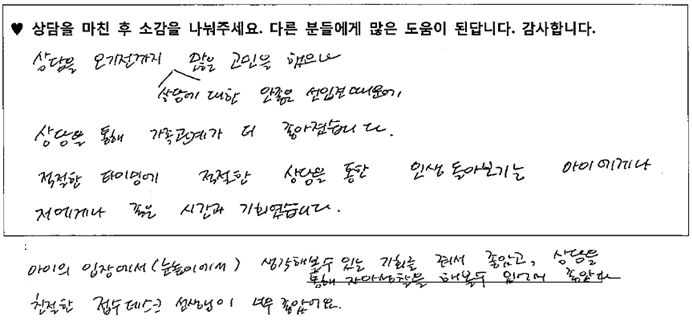 ♥ 상담을 마친 후 소감을 나눠주세요. 다른 분들에게 많은 도움이 된답니다. 감사합니다.
상담을 오기전까지 많은 고민을 했으나
상담에 대한 안좋은 선입견때문에,
상담을 통해 가족관계가 더 좋아졌습니다.
적절한 타이밍에 적절한 상담을 통한 인생 돌아보기는 아이에게나
저에게나 좋은 시간과 기회였습니다.
아이의 입장에서(눈높이에서) 생각해볼수 있는 기회를 줘서 좋았고, 상담을
통해 자아성찰을 해볼수 있어서 좋았다
친절한 접수데스크 선생님이 너무 좋았어요.